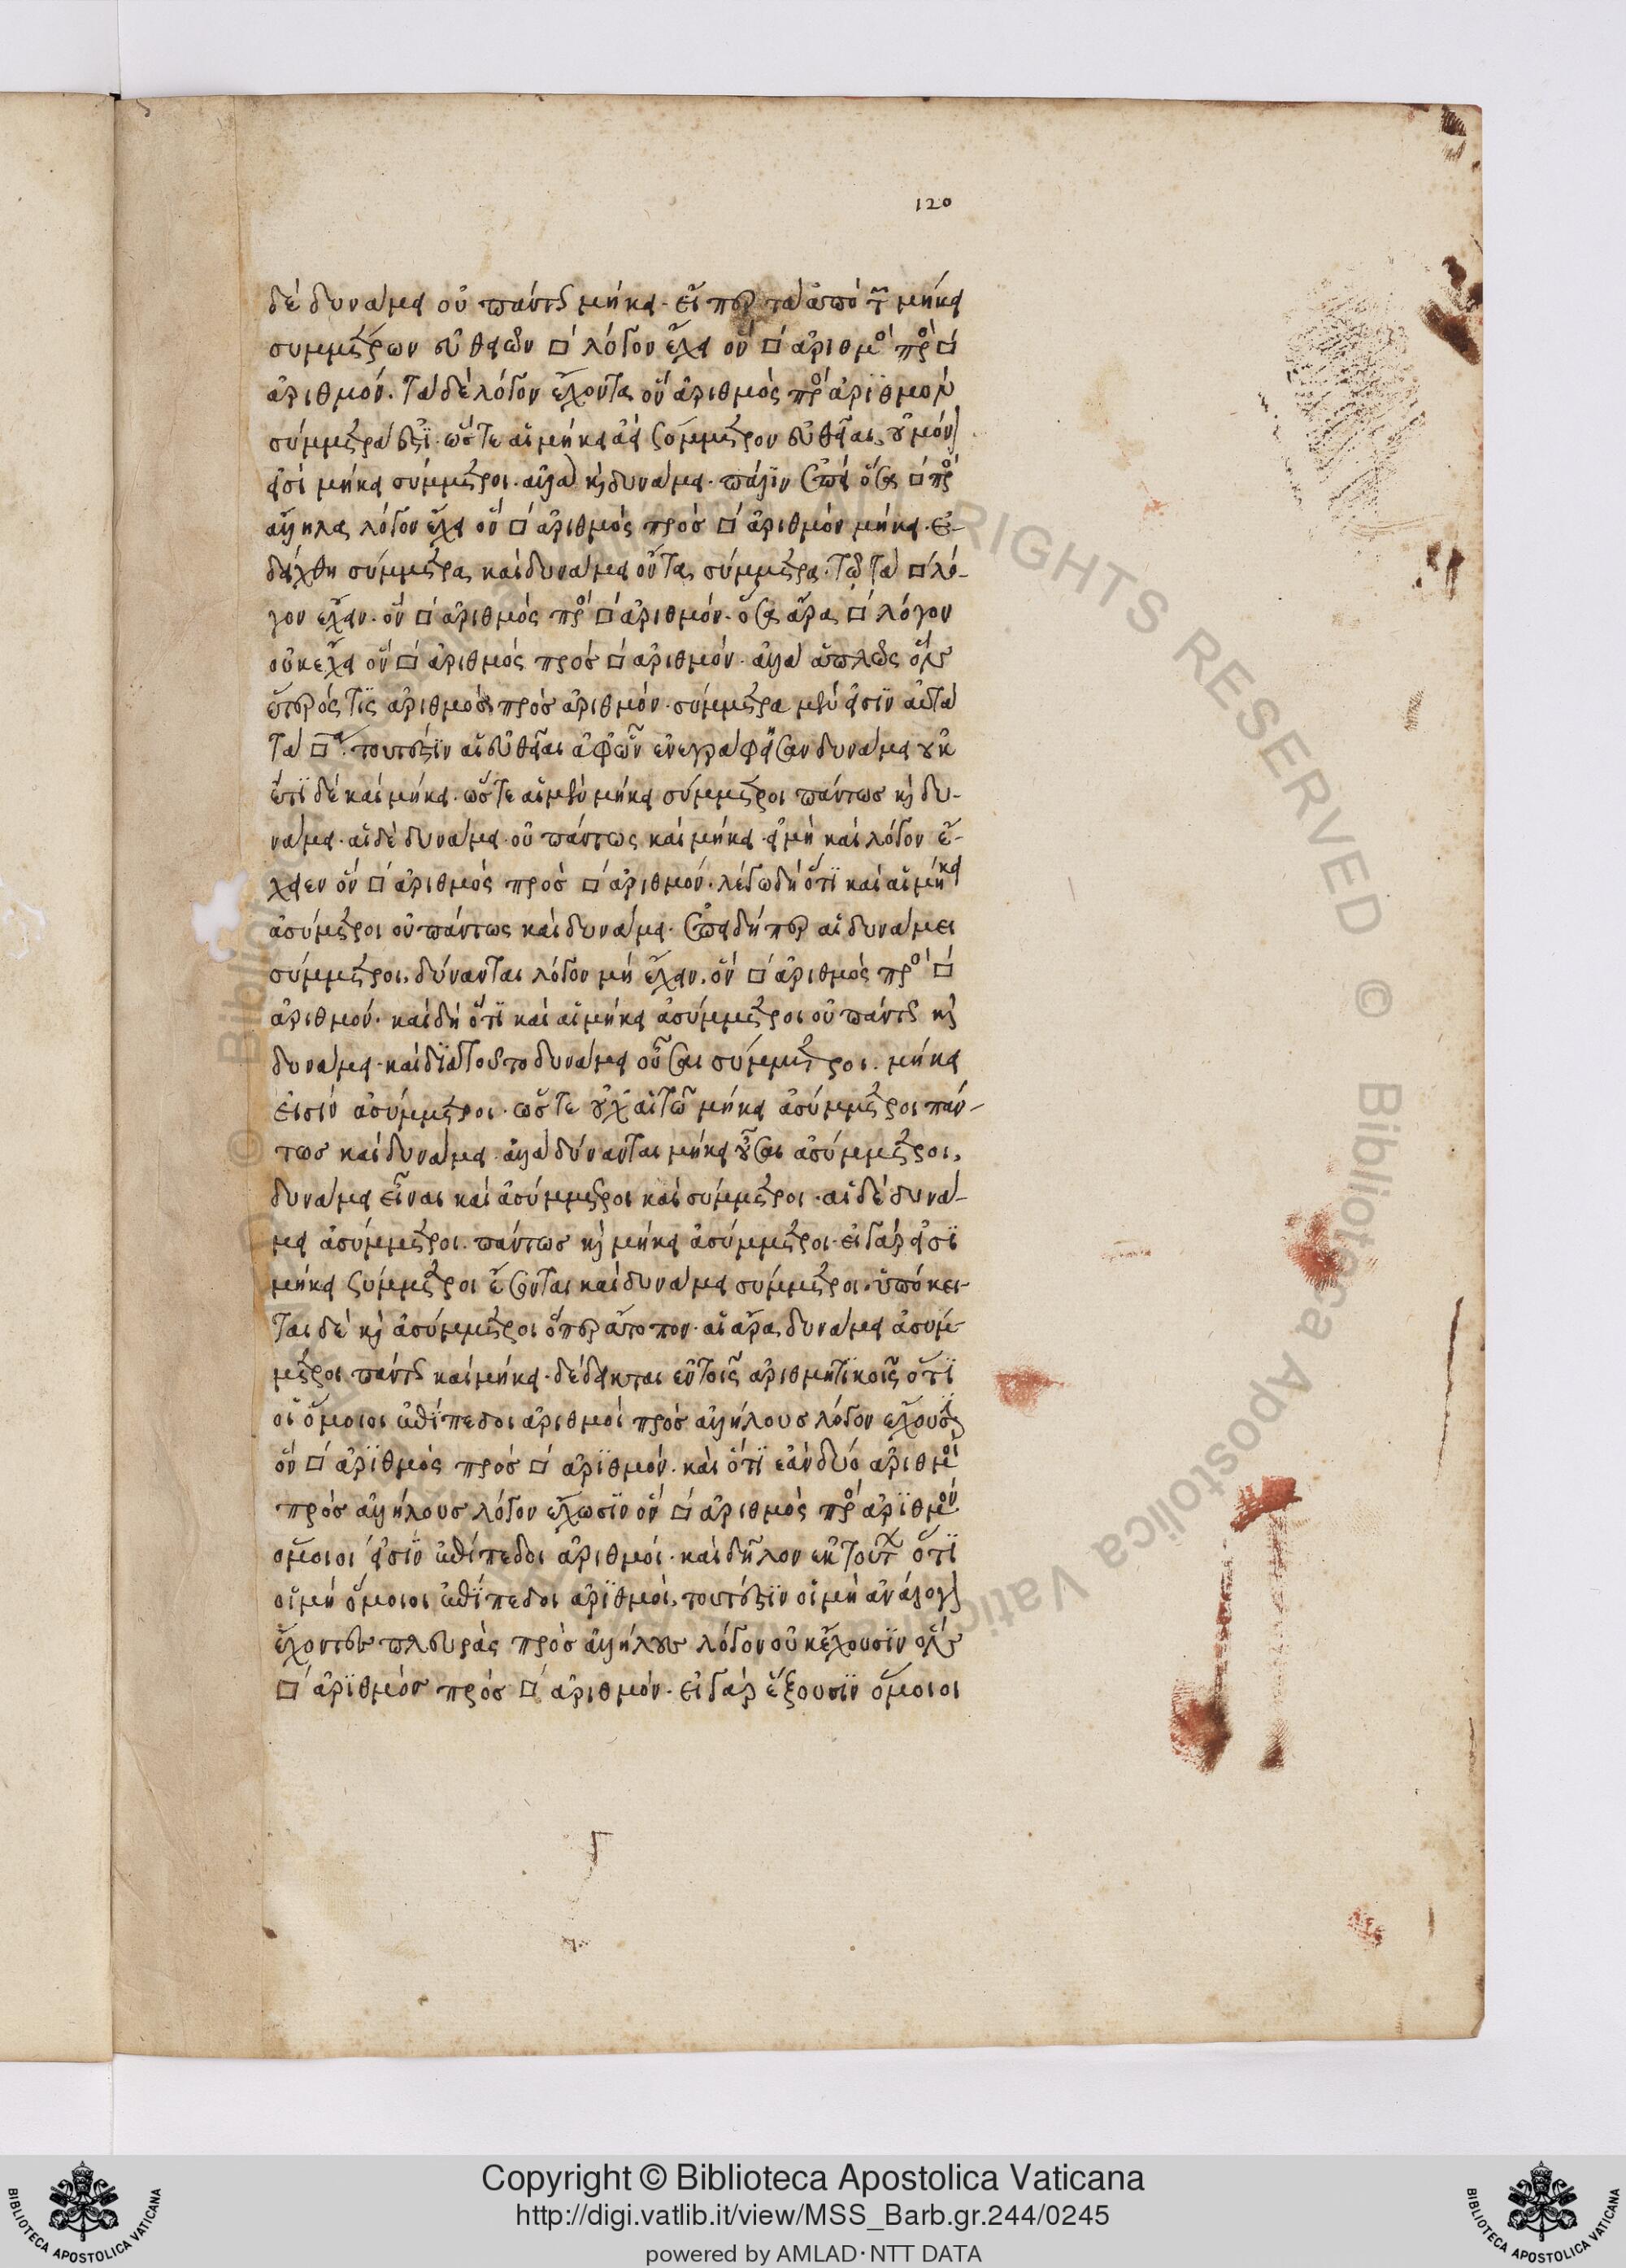 120
δὲ δυνάμει οὐ πάντως μήκει. εἴπερ τὰ ἀπὸ τῶν μήκει
συμμέτρων εὐθειῶν □ λόγον ἔχει ὃν □ ἀριθμὸς πρὸς □
ἀριθμόν. τὰ δὲ λόγον ἔχοντα ὃν ἀριθμὸς πρὸς ἀριθμὸν
σύμμετρά ἐστι. ὥστε αἱ μήκει σύμμετροι εὐθεῖαι οὐ μόν
εἰσὶ μήκει σύμμετροι. ἀλλὰ καὶ δυνάμει. πάλιν ἐπεὶ ὅσα □ πρὸς
ἄλληλα λόγον ἔχει ὃν □ ἀριθμὸς πρὸς □ ἀριθμὸν μήκει. ἐ-
δείχθη σύμμετρα καὶ δυνάμει ὄντα σύμμετρα. τῷ τὰ □ λό-
γον ἔχειν. ὃν □ ἀριθμὸς πρὸς □ ἀριθμόν. ὅσα ἄρα □ λόγον
οὐκ ἔχει ὃν □ ἀριθμὸς πρὸς □ ἀριθμόν. ἀλλὰ ἁπλῶς ὃν
ἕτερός τις ἀριθμὸς πρὸς ἀριθμόν. σύμμετρα μὲν εἰσὶν αὐτὰ
τὰ □α. τουτέστιν αἱ εὐθεῖαι ἀφ' ὧν ἀνεγράφησαν δυνάμει οὐκ
ἔτι δὲ καὶ μήκει. ὥστε αἱ μὲν μήκει σύμμετροι πάντως καὶ δυ-
νάμει. αἱ δὲ δυνάμει. οὐ πάντως καὶ μήκει. εἰ μὴ καὶ λόγον ἔ-
χειεν ὃν □ ἀριθμὸς πρὸς □ ἀριθμόν. λέγω δὴ ὅτι καὶ αἱ μήκει
ἀσύμετροι οὐ πάντως καὶ δυνάμει. ἐπειδήπερ αἱ δυνάμει
σύμμετροι, δύνανται λόγον μὴ ἔχειν, ὃν □ ἀριθμὸς πρὸς □
ἀριθμόν. καὶ δὴ ὅτι καὶ αἱ μήκει ἀσύμμετροι οὐ πάντως καὶ
δυνάμει. καὶ διὰ τοῦτο δυνάμει οὖσαι σύμμετροι. μήκει
εἰσὶν ἀσύμμετροι. ὥστε οὐχ αἱ τῷ μήκει ἀσύμμετροι πάν-
τως καὶ δυνάμει. ἀλλὰ δύνανται μήκει οὖσαι ἀσύμμετροι,
δυνάμει εἶναι καὶ ἀσύμμετροι καὶ σύμμετροι. αἱ δὲ δυνά-
μει ἀσύμμετροι. πάντως καὶ μήκει ἀσύμμετροι. εἰ γάρ εἰσι
μήκει σύμμετροι ἔσονται καὶ δυνάμει σύμμετροι. ὑπόκει-
ται δὲ καὶ ἀσύμμετροι ὅπερ ἄτοπον. αἱ ἄρα δυνάμει ἀσύμ-
μετροι πάντως καὶ μήκει. δέδεικται ἐν τοῖς ἀριθμητικοῖς ὅτι
οἱ ὅμοιοι ἐπίπεδοι ἀριθμοὶ πρὸς ἀλλήλους λόγον ἔχουσι
ὃν □ ἀριθμὸς πρὸς □ ἀριθμόν. καὶ ὅτι ἐὰν δύο ἀριθμοὶ
πρὸς ἀλλήλους λόγον ἔχωσιν ὃν □ ἀριθμὸς πρὸς ἀριθμὸν
ὅμοιοι εἰσὶν ἐπίπεδοι ἀριθμοί. καὶ δῆλον ἐκ τούτων ὅτι
οἱ μὴ ὅμοιοι ἐπίπεδοι ἀριθμοί, τουτέστιν οἱ μὴ ἀνάλογον
ἔχοντες πλευρὰς πρὸς ἀλλήλους λόγον οὐκ ἔχουσιν ὃν
□ ἀριθμὸς πρὸς □ ἀριθμόν. εἰ γὰρ ἕξουσιν ὅμοιοι
ALL RIGHTS RESERVED © Biblioteca Apostolica Vaticana
Copyright © Biblioteca Apostolica Vaticana
http://digi.vatlib.it/view/MSS_Barb.gr.244/0245
powered by AMLAD·NTT DATA
BIBLIOTECA APOSTOLICA VATICANA
BIBLIOTECA APOSTOLICA VATICANA